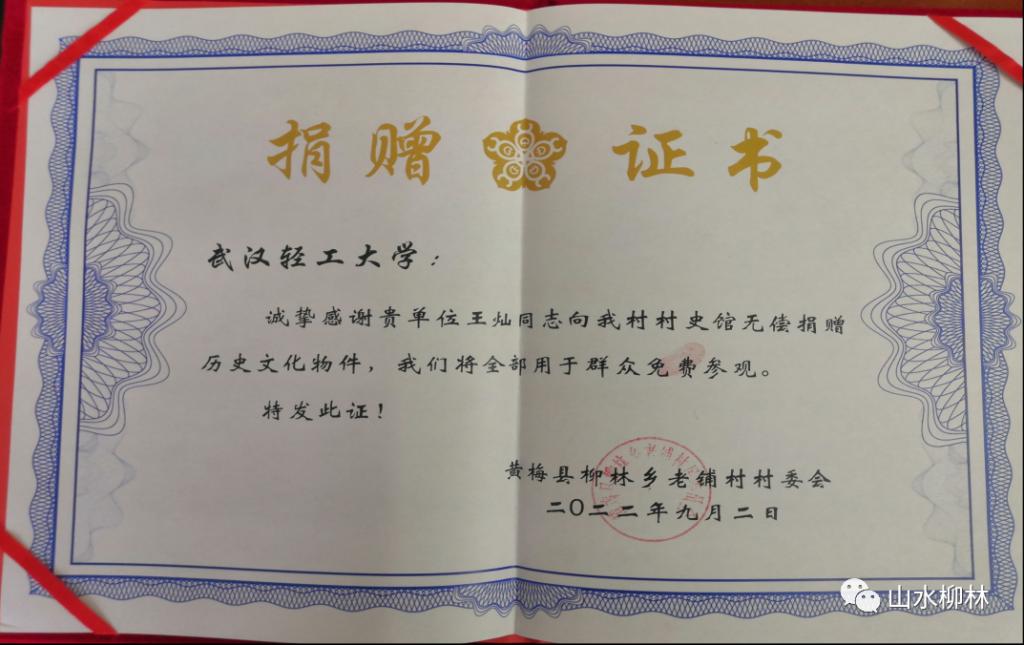 捐赠证书
武汉轻工大学：
诚挚感谢贵单位王灿同志向我村村史馆无偿捐赠
历史文化物件，我们将全部用于群众免费参观。
特发此证！
黄梅县柳林乡老铺村村委会
二〇二二年九月二日
山水柳林